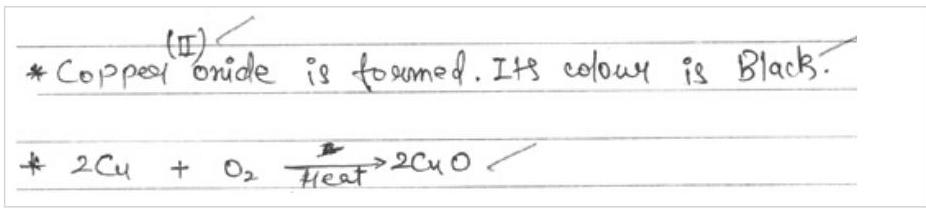 (II)
* Copper oxide is formed. Its colour is Black.
* 2Cu + O₂ → 2CuO
Heat